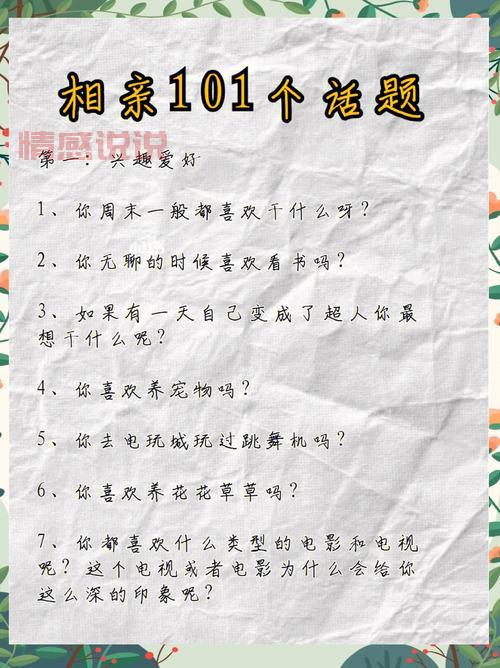 相亲101个话题
情感说说
第一：兴趣爱好
1、你周末一般都喜欢干什么呀？
2、你无聊的时候喜欢看书吗？
3、如果有一天自己变成了超人你最
想干什么呢？
4、你喜欢养宠物吗？
5、你去电玩城玩过跳舞机吗？
6、你喜欢养花花草草吗？
7、你都喜欢什么类型的电影和电视
呢？这个电视或者电影为什么会给你
这么深的印象呢？